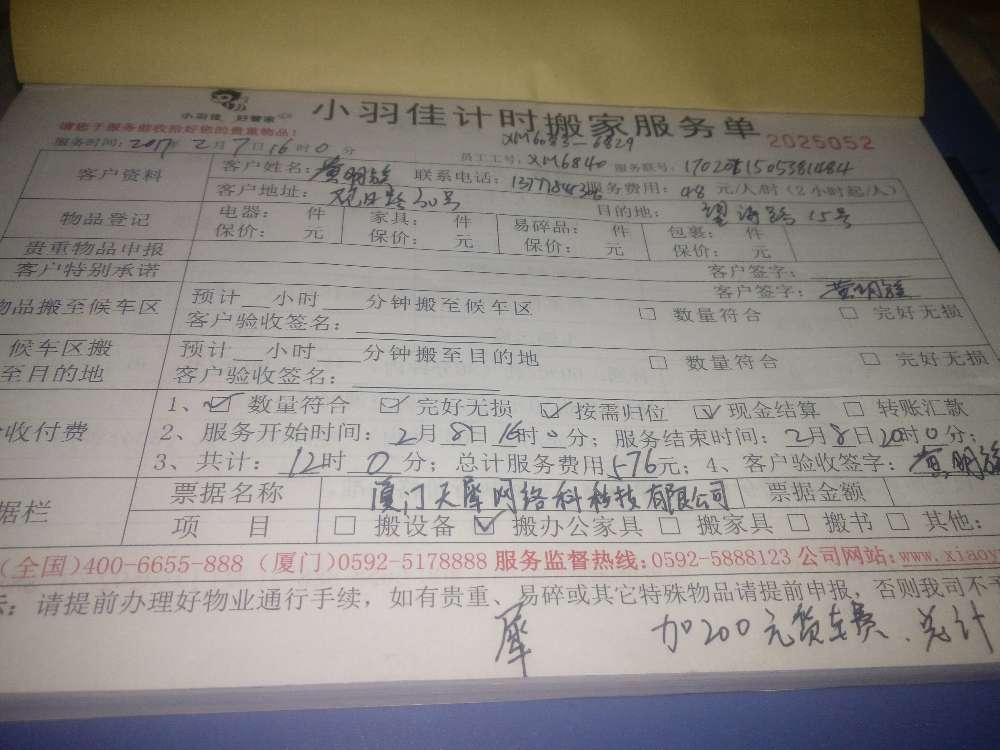 小羽佳 好管家
小羽佳计时搬家服务单
XM6083-6829
请您于服务前收拾好您的贵重物品!
2025052
服务时间: 2017年2月7日16时0分
员工工号: XM6840 服务联号:
客户资料 客户姓名: 黄明 联系电话: 服务费用: 48元/人/时(2小时起/人)
客户地址: 30号 目的地: 望海路15号
物品登记 电器: 件 家具: 件 易碎品: 件 包裹: 件
保价: 元 保价: 元 保价: 元 保价: 元
贵重物品申报 客户签字:
客户特别承诺 客户签字: 黄明
物品搬至候车区 预计 小时 分钟搬至候车区 □ 数量符合 □ 完好无损
客户验收签名:
候车区搬 预计 小时 分钟搬至目的地 □ 数量符合 □ 完好无损
至目的地 客户验收签名:
收付费 1、☑ 数量符合 ☑ 完好无损 ☑ 按需归位 ☑ 现金结算 □ 转账汇款
2、服务开始时间: 2月8日16时0分; 服务结束时间: 2月8日20时0分;
3、共计: 12时0分; 总计服务费用576元; 4、客户验收签字: 黄明
据栏 票据名称 厦门天犀网络科技有限公司 票据金额
项目 □ 搬设备 ☑ 搬办公家具 □ 搬家具 □ 搬书 □ 其他:
(全国)400-6655-888 (厦门)0592-5178888 服务监督热线:0592-5888123 公司网站:www.xiaoy
示: 请提前办理好物业通行手续, 如有贵重、易碎或其它特殊物品请提前申报, 否则我司不予
犀 加200元货车费、总计